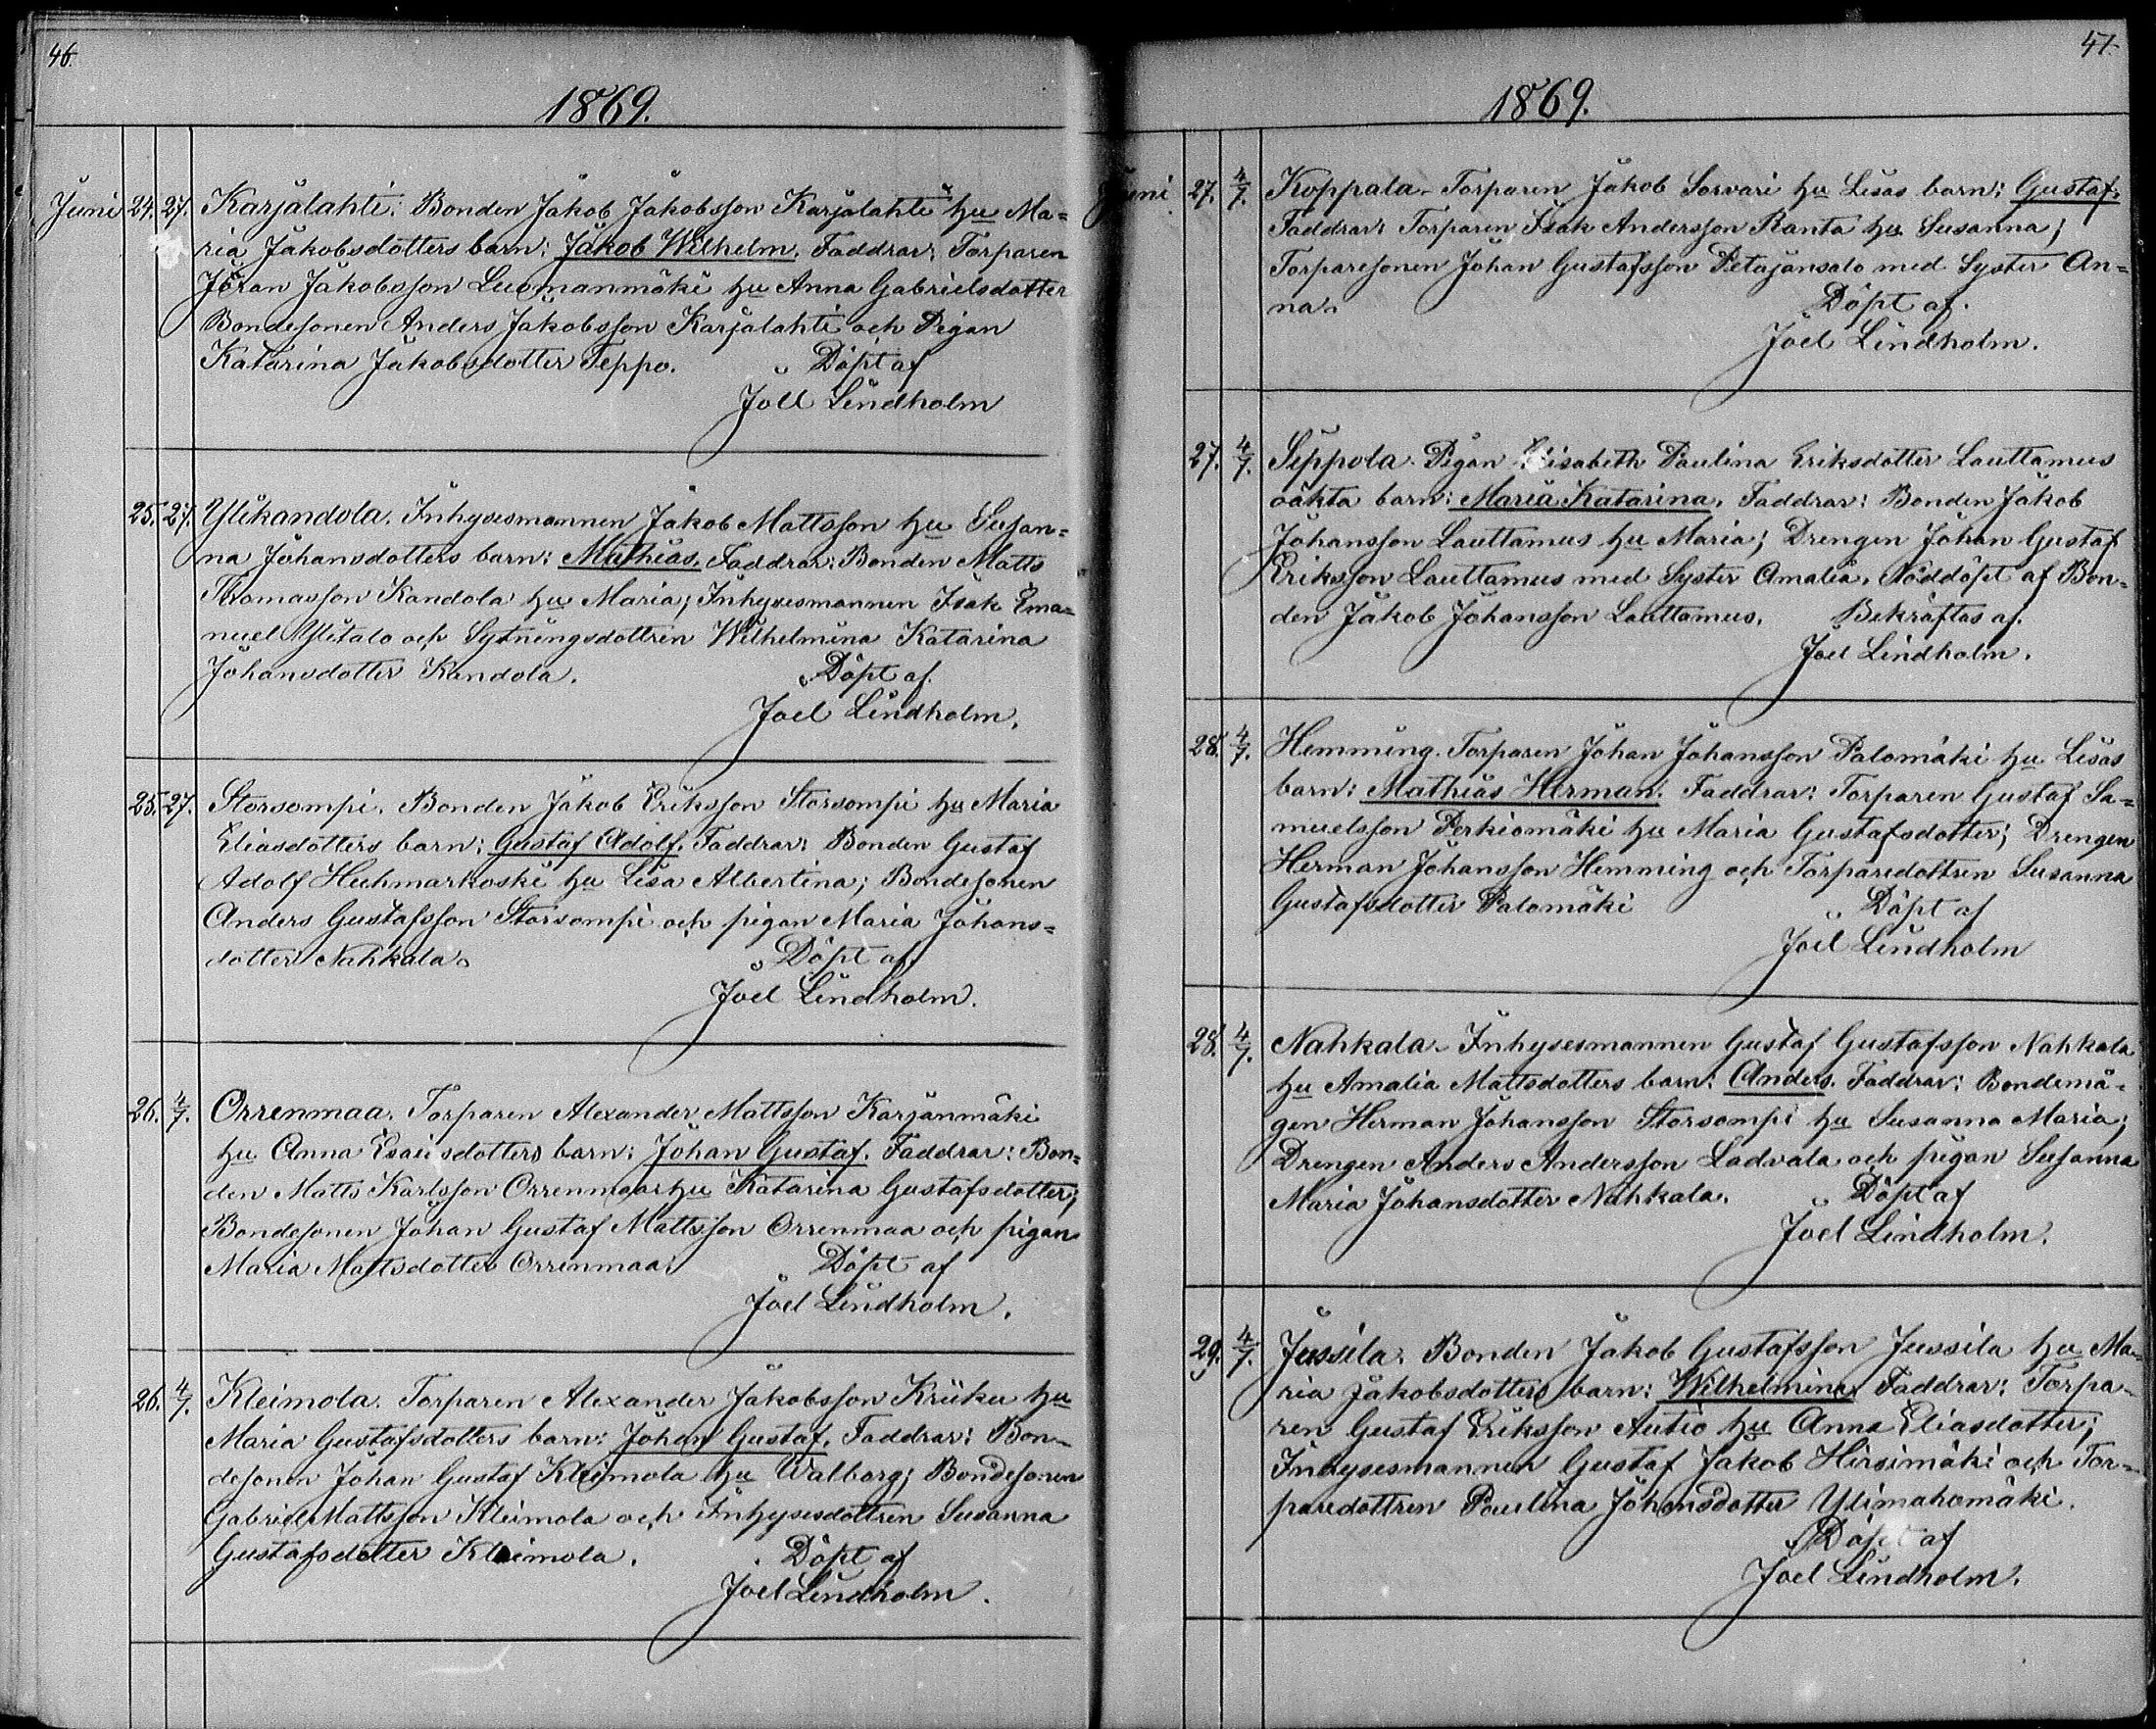 46.
1869.
Juni 24. 27. Karjalahti. Bonden Jakob Jakobsson Karjalahti hu Ma=
ria Jakobsdotters barn: Jakob Wilhelm. Faddrar: Torparen
Jöran Jakobsson Luomanmäki hu Anna Gabrielsdotter
Bondesonen Anders Jakobsson Karjalahti och Pigan
Katarina Jakobsdotter Teppo. Döpt af
Joel Lindholm
25. 27. Ylikandola. Inhysesmannen Jakob Mattsson hu Susan=
na Johansdotters barn: Mathias. Faddrar: Bonden Matts
Thomasson Kandola hu Maria; Inhysesmannen Isak Ema=
nuel Ylitalo och Sytningsdottren Wilhelmina Katarina
Johansdotter Kandola. Döpt af.
Joel Lindholm.
25. 27. Storsompi. Bonden Jakob Eriksson Storsompi hu Maria
Eliasdotters barn: Gustaf Adolf. Faddrar: Bonden Gustaf
Adolf Huhmarkoski hu Lisa Albertina; Bondesonen
Anders Gustafsson Storsompi och pigan Maria Johans=
dotter Nahkala. Döpt af.
Joel Lindholm.
26. 4/7. Orrenmaa. Torparen Alexander Mattsson Karjanmäki
hu Anna Esaiisdotters barn: Johan Gustaf. Faddrar: Bon=
den Matts Karlsson Orrenmaa hu Katarina Gustafsdotter;
Bondesonen Johan Gustaf Mattsson Orrenmaa och pigan
Maria Mattsdotter Orrenmaa. Döpt af
Joel Lindholm.
26. 4/7. Kleimola. Torparen Alexander Jakobsson Kriiku hu
Maria Gustafsdotters barn: Johan Gustaf. Faddrar: Bon=
desonen Johan Gustaf Kleimola hu Walborg; Bondesonen
Gabriel Mattsson Kleimola och Inhysesdottren Susanna
Gustafsdotter Kleimola. Döpt af
Joel Lindholm.
47.
1869.
Juni 27. 4/7. Koppala. Torparen Jakob Sorvari hu Lisas barn: Gustaf.
Faddrar: Torparen Isak Andersson Ranta hu Susanna;
Torparesonen Johan Gustafsson Petäjänsalo med Syster An=
na. Döpt af.
Joel Lindholm.
27. 4/7. Seppola. Pigan Elisabeth Paulina Eriksdotter Lauttamus
oäkta barn: Maria Katarina. Faddrar: Bonden Jakob
Johansson Lauttamus hu Maria; Drengen Johan Gustaf
Eriksson Lauttamus med Syster Amalia. Nöddöpt af Bon=
den Jakob Johansson Lauttamus. Bekräftas af.
Joel Lindholm.
28. 4/7. Hemming. Torparen Johan Johansson Palomäki hu Lisas
barn: Mathias Herman. Faddrar: Torparen Gustaf Sa=
muelsson Perkiömäki hu Maria Gustafsdotter; Drengen
Herman Johansson Hemming och Torparedottren Susanna
Gustafsdotter Palomäki Döpt af
Joel Lindholm
28. 4/7. Nahkala. Inhysesmannen Gustaf Gustafsson Nahkala
hu Amalia Mattsdotters barn: Anders. Faddrar: Bondemå=
gen Herman Johansson Storsompi hu Susanna Maria;
Drengen Anders Andersson Ladvala och pigan Susanna
Maria Johansdotter Nahkala. Döpt af
Joel Lindholm.
29. 4/7. Jussila. Bonden Jakob Gustafsson Jussila hu Ma=
ria Jakobsdotters barn: Wilhelmina. Faddrar: Torpa=
ren Gustaf Eriksson Autio hu Anna Eliasdotter;
Inhysesmannen Gustaf Jakob Hirsimäki och Tor=
paredottren Paulina Johansdotter Ylimahomäki.
Döpt af
Joel Lindholm.